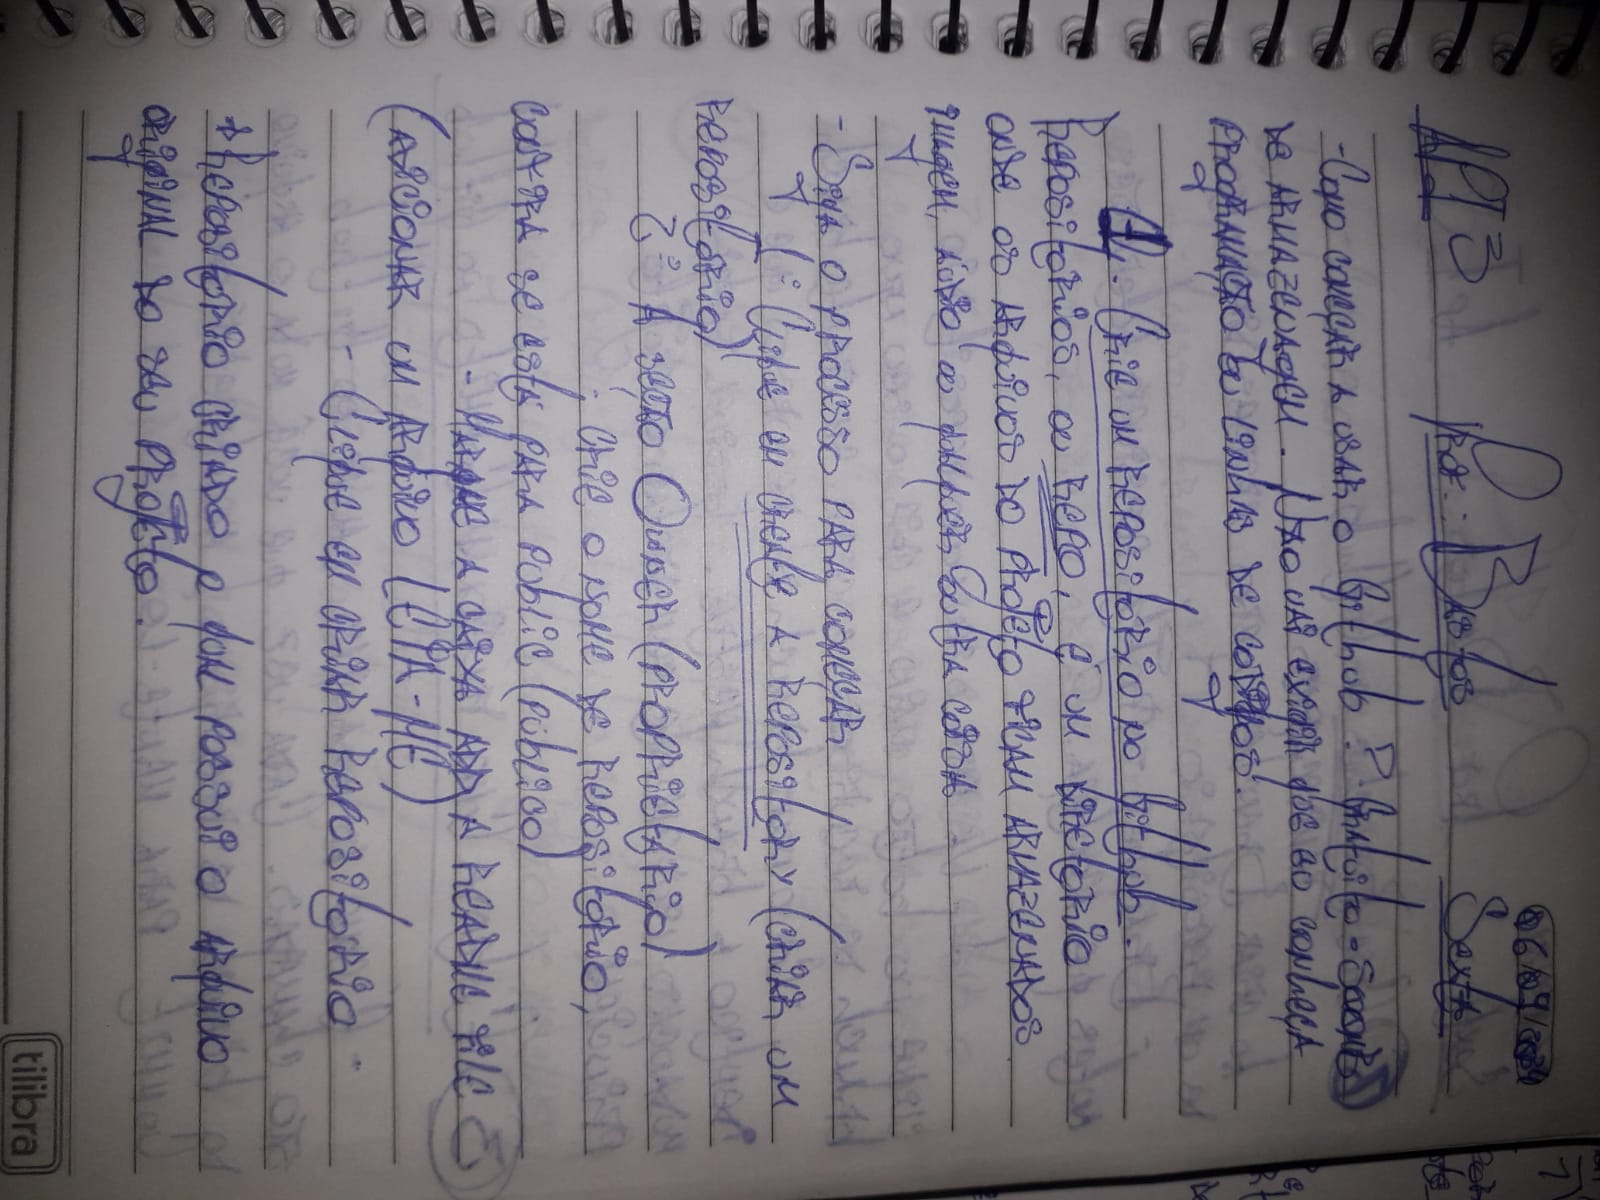 06/09/2024
API 3 Prof.: Bastos Sexta
- Como começar a usar o Github? Gratuito - 500MB
de armazenagem. Não vai exigir que eu conheça
programação ou linhas de codigos.
1. Crie um repositório no Github.
Repositórios, ou repo, é um diretorio
onde os arquivos do projeto ficam armazenados
imagem, aúdio ou qualquer outra coisa
- Siga o processo para começar
1º Clique em create a repository (criar um
repositório)
2º A seção Owner (proprietário)
: crie o nome de repositório,
confira se está para public (público)
- Marque a caixa add a readme file
(adicionar um arquivo LEIA-ME)
- Clique em criar repositório
+ Repositório criado o qual possui o arquivo
original do seu projeto.
tilibra